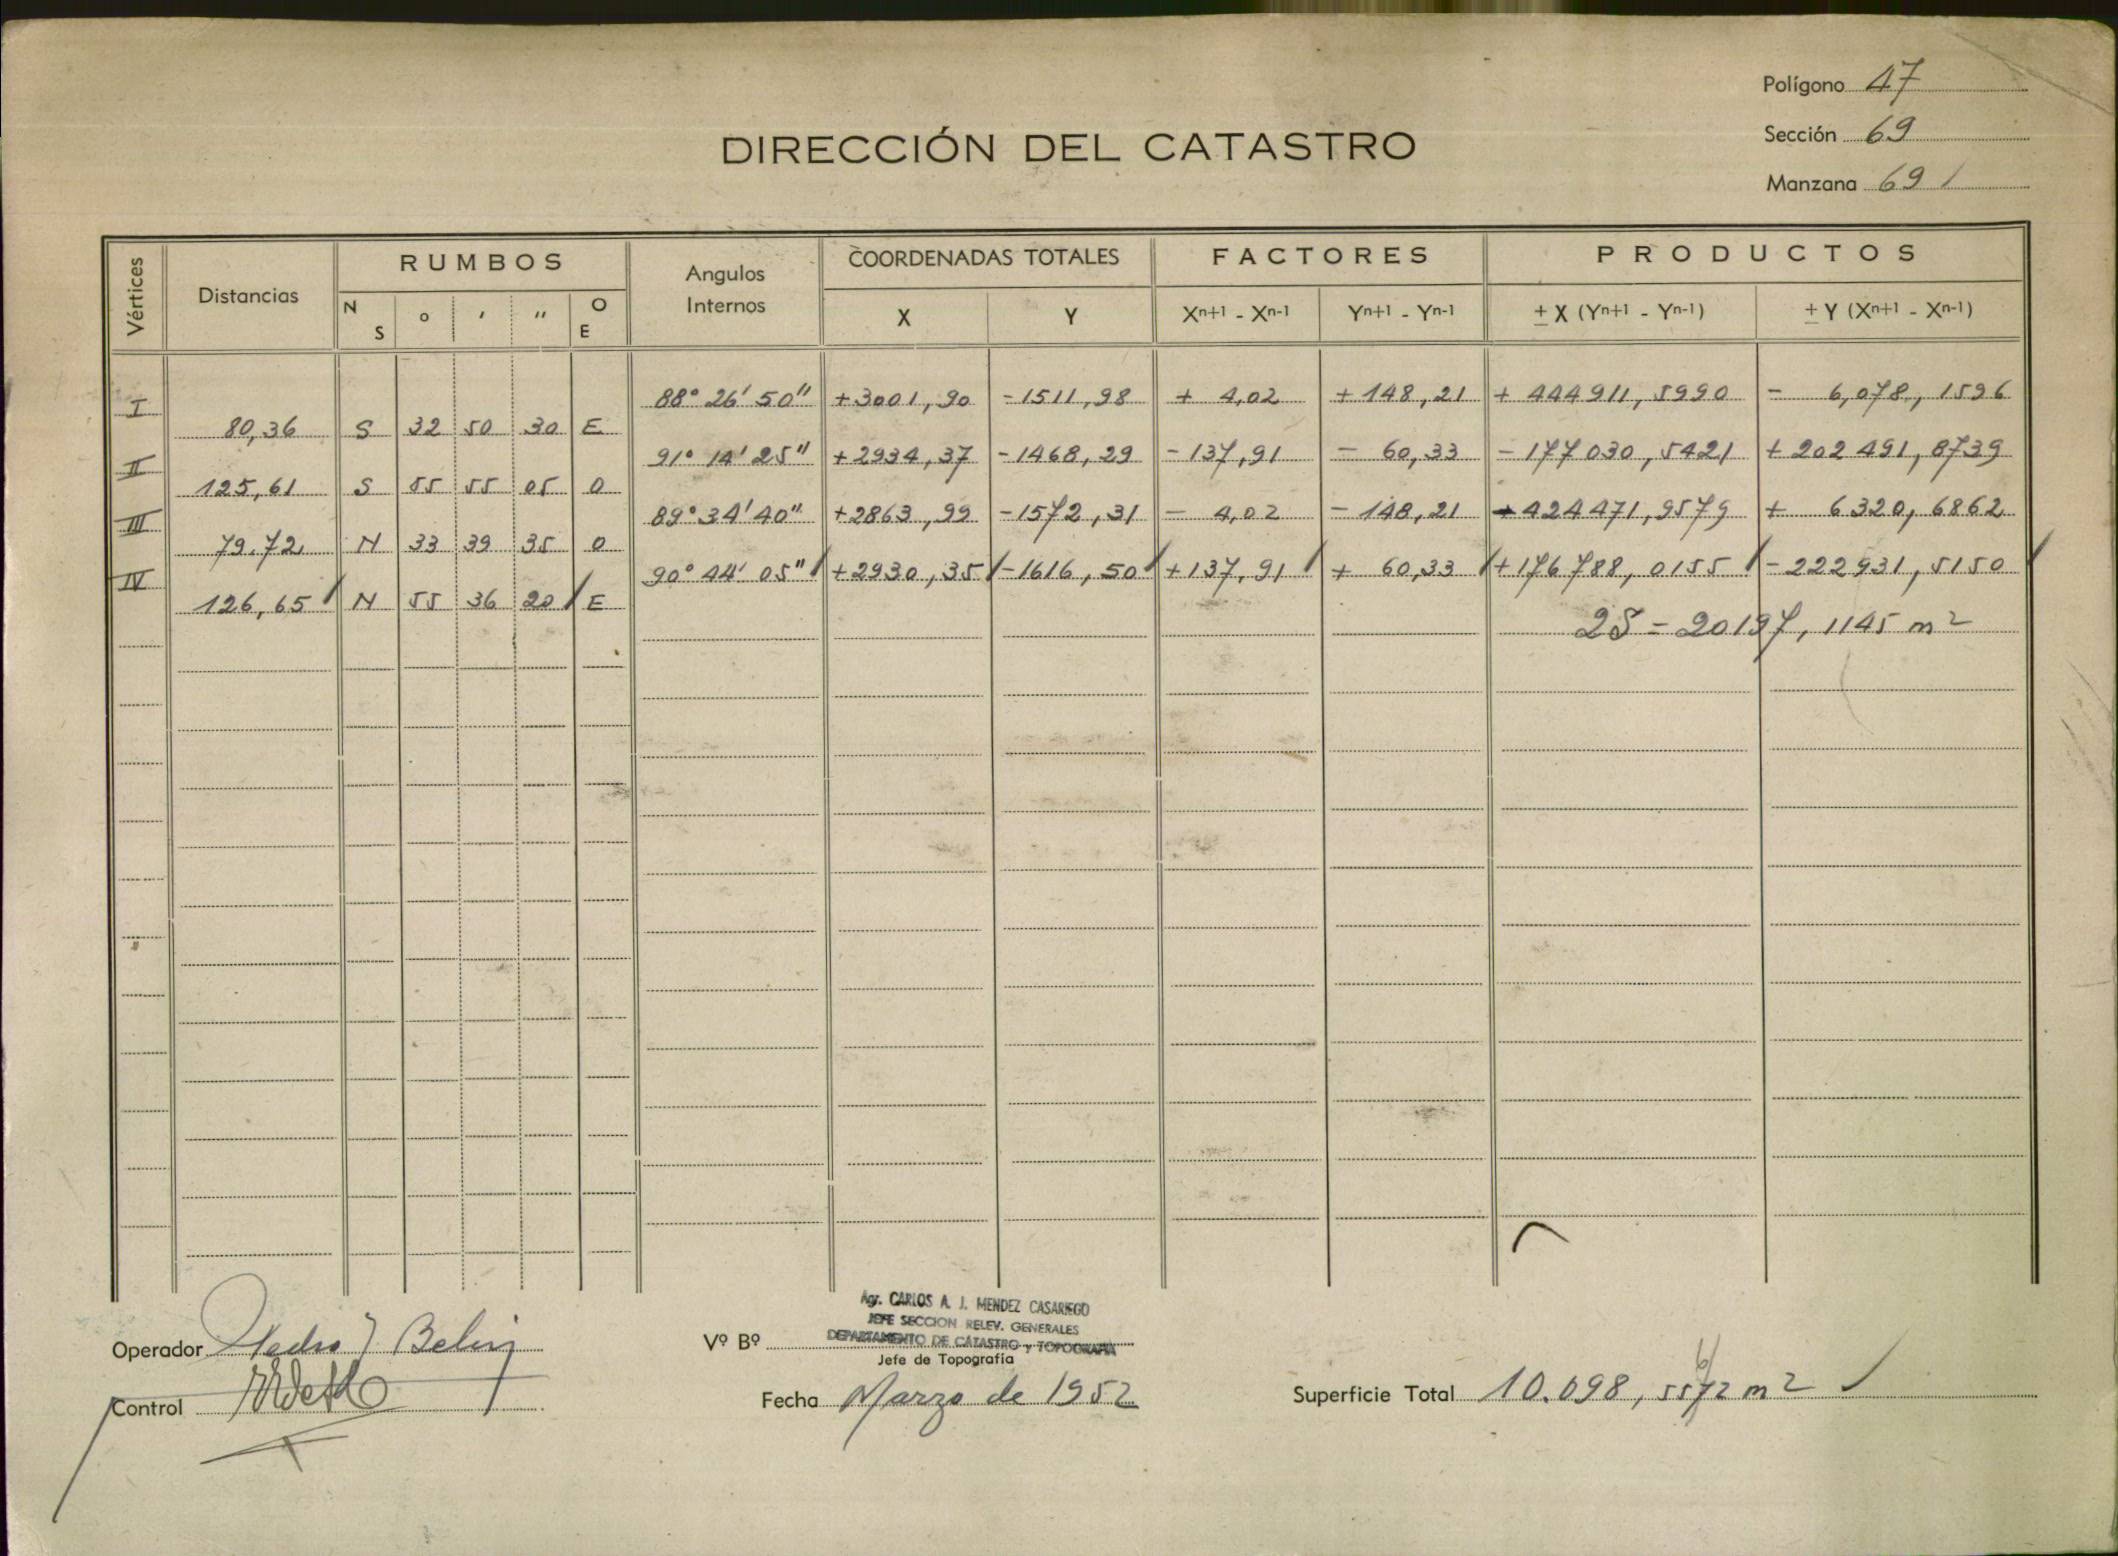 Polígono 47
DIRECCIÓN DEL CATASTRO
Sección 69
Manzana 691
Vértices Distancias RUMBOS Angulos Internos COORDENADAS TOTALES FACTORES PRODUCTOS
N S o ' " O E X Y Xn+1 - Xn-1 Yn+1 - Yn-1 ± X (Yn+1 - Yn-1) ± Y (Xn+1 - Xn-1)
I 88° 26' 50" +3001,90 -1511,98 + 4,02 +148,21 + 444911,5990 - 6,078,1596
80,36 S 32 50 30 E
II 91° 14' 25" +2934,37 -1468,29 -137,91 - 60,33 -177030,5421 +202491,8739
125,61 S 55 55 05 O
III 89° 34' 40" +2863,99 -1572,31 - 4,02 -148,21 -424471,9579 + 6320,6862
79,72 N 33 39 35 O
IV 90° 44' 05" +2930,35 -1616,50 +137,91 + 60,33 +176788,0155 -222931,5150
126,65 N 55 36 20 E
2S = 20197,1145 m2
Agr. CARLOS A. J. MENDEZ CASARIEGO
JEFE SECCION RELEV. GENERALES
DEPARTAMENTO DE CATASTRO y TOPOGRAFIA
Operador Pedro J Belin
Vº Bº
Jefe de Topografía
Control
Fecha Marzo de 1952
Superficie Total 10.098,5572 m2